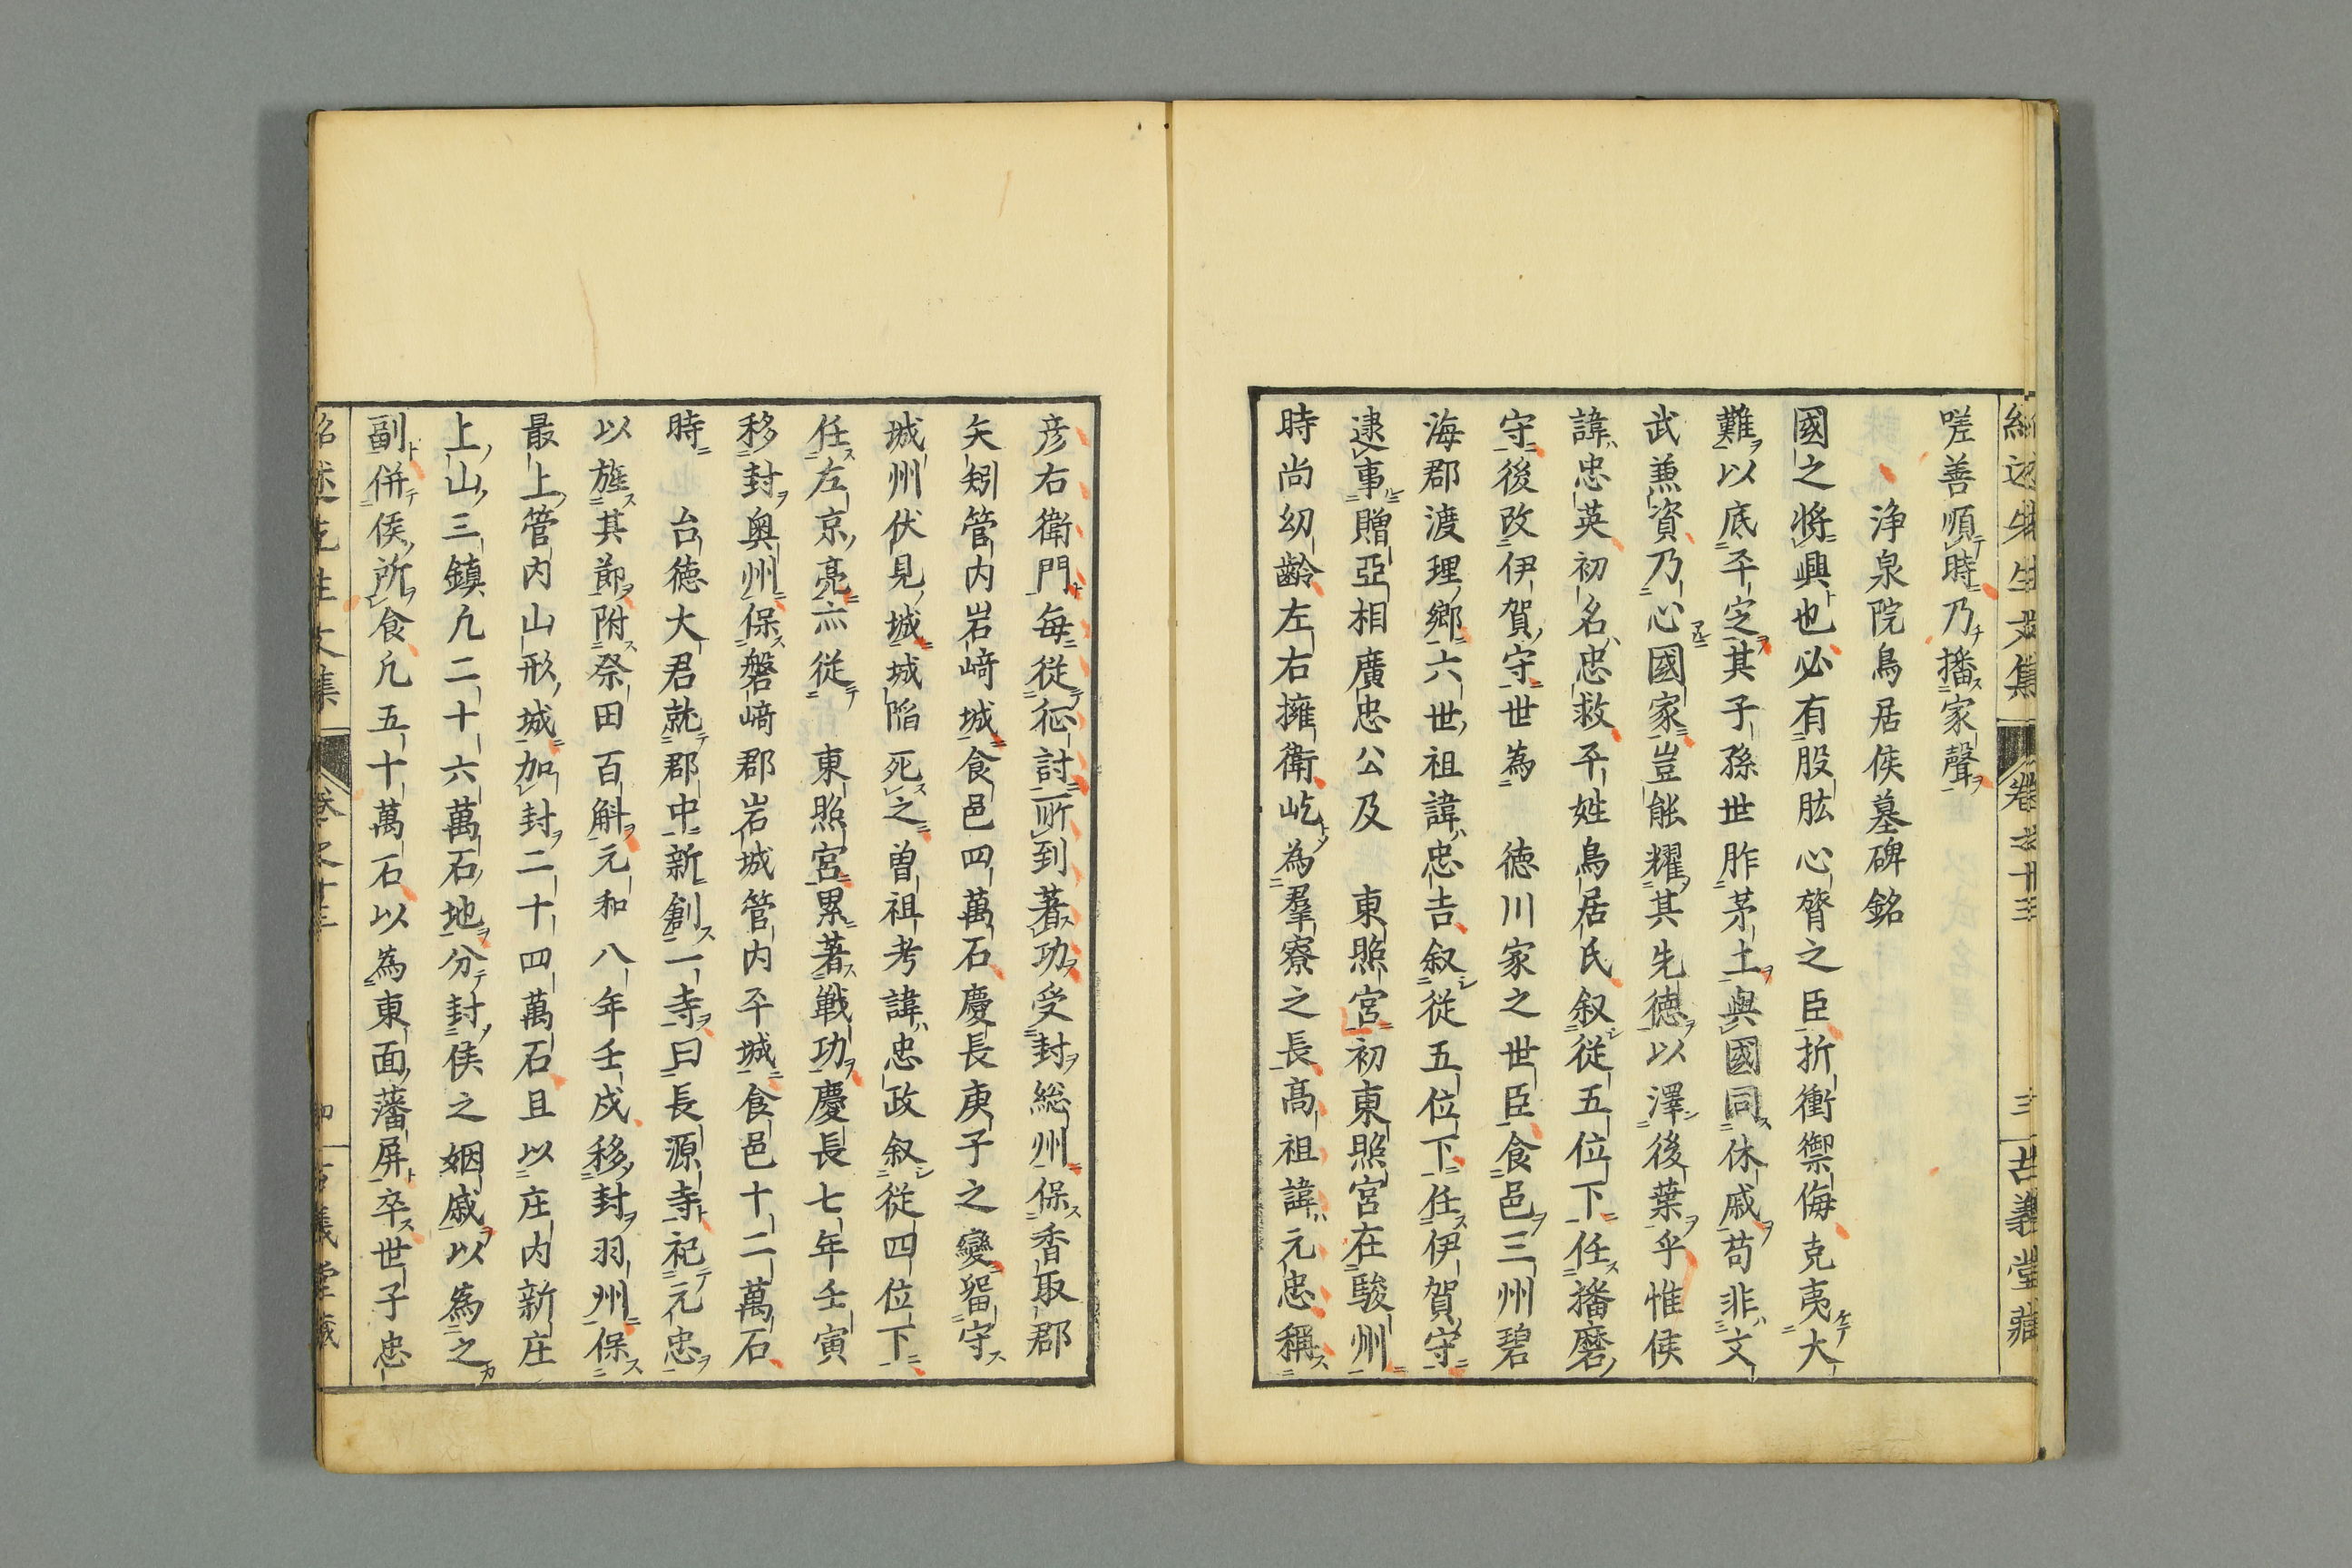 紹述先生文集 卷之十三 三 古義堂藏
嗟善順時乃播家聲
浄泉院鳥居侯墓碑銘
國之將興也必有股肱心膂之臣折衝禦侮克夷大
難以底平定其子孫世胙茅土與國同休戚苟非文
武兼資乃心國家豈能耀其先德以澤後葉乎惟侯
諱忠英初名忠救平姓鳥居氏叙從五位下任播磨
守後改伊賀守世為　德川家之世臣食邑三州碧
海郡渡理鄉六世祖諱忠吉叙從五位下任伊賀守
逮事贈亞相廣忠公及　東照宮初東照宮在駿州
時尚幼齡左右擁衛屹為羣寮之長高祖諱元忠稱
彦右衛門每從征討所到著功受封総州保香取郡
矢矧管內岩﨑城食邑四萬石慶長庚子之變留守
城州伏見城城陷死之曽祖考諱忠政叙從四位下
任左京亮亦從　東照宮累著戰功慶長七年壬寅
移封奥州保磐﨑郡岩城管內平城食邑十二萬石
時　台德大君就郡中新創一寺曰長源寺祀元忠
以旌其節附祭田百斛元和八年壬戌移封羽州保
最上管內山形城加封二十四萬石且以庄內新庄
上山三鎮凢二十六萬石地分封侯之姻戚以為之
副併侯所食凢五十萬石以為東面藩屏卒世子忠